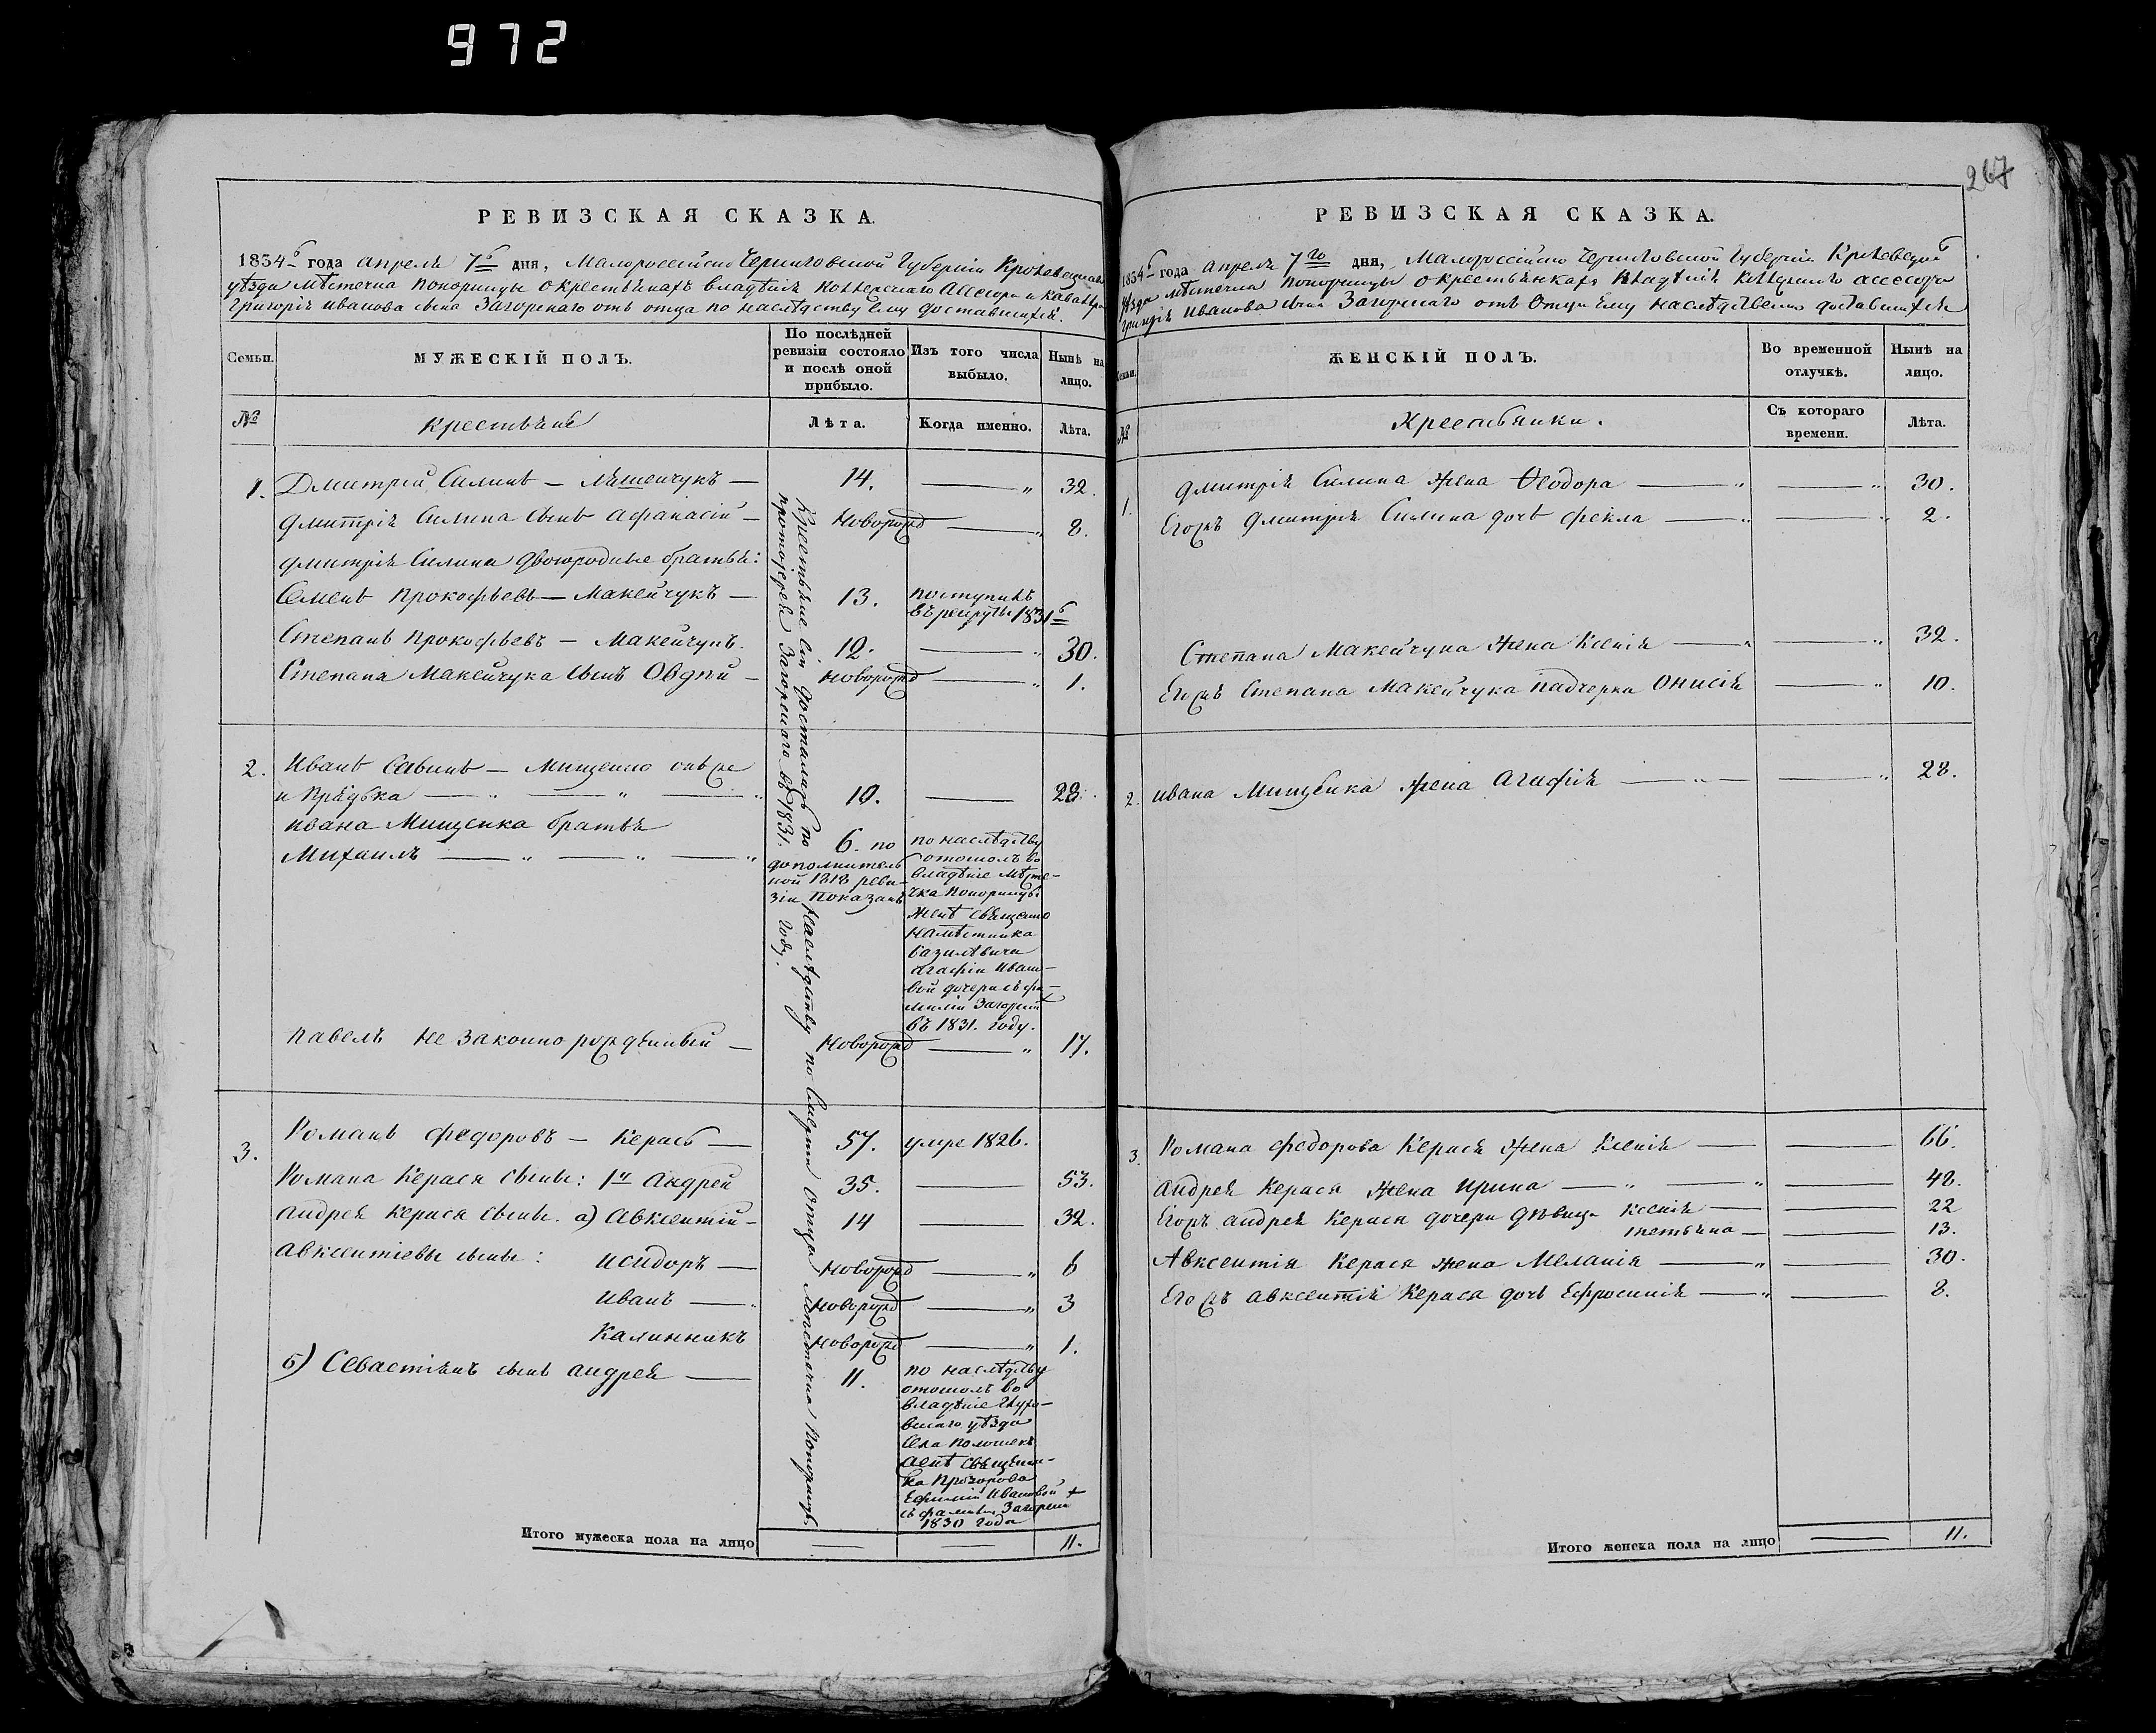 972
267
РЕВИЗСКАЯ СКАЗКА.
1834го года апреля 7го дня, Малороссийско Черниговской Губернии Кролевецкаго
уѣзда мѣстечка Понорницы о крестьянахъ владѣния коллежскаго Ассесора и Кавалера
Григория Иванова сына Загорскаго отъ отца по наслѣдству ему доставшихся.
Семьи.
МУЖЕСКІЙ ПОЛЪ.
По послѣдней ревизіи состояло и послѣ оной прибыло.
Изъ того числа выбыло.
Нынѣ на лицо.
№
крестьяне
Лѣта.
Когда именно.
Лѣта.
1. Дмитрий Силинъ — Макейчукъ — 14. — " 32.
Дмитрия Силина сынъ Афанасий — Новорожд — " 8.
Дмитрия Силина двоюродные братья:
Семенъ Прокофьевъ — Макейчукъ — 13. поступилъ
въ рекруты 1831го
Степанъ Прокофьевъ — Макейчукъ. 12. — " 30.
Степана Макейчука сынъ Овдѣй — Новорожд — " 1.
2. Иванъ Савинъ — Мищенко онъ же
и Прядька — " — " — " 10. — 28.
Ивана Мищенка братья
Михаилъ — " — " — " 6. по
дополнитель
ной 1818 реви-
зіи показанъ
по наслѣдству
отошолъ во
владѣние Мѣсте-
чка Понорницы
женѣ священно
намѣстника
Базилевича
Агафіи Ивано-
вой дочери съ фа-
миліи Загорской
въ 1831. году.
Павелъ не законно рожденный — Новорожд — " 17.
3. Романъ Федоровъ — Керасъ — 57. умре 1826.
Романа Керася сыны: 1й Андрей 35. — 53.
Андрея Керася сыны. а) Авксентий — 14 — 32.
Авксентиевы сыны: Исидоръ — Новорожд — " 6
Иванъ — Новорожд — " 3
Калинникъ Новорожд — " 1.
б) Севастіянъ сынъ Андрея — 11.
по наслѣдству
отошолъ во
владѣние Глухо-
вскаго уѣзда
Села Полошекъ
женѣ священни-
ка Прозорова
Ефиміи Ивановой
съ фамиліи Загорской
1830 года
Крестьяне сіи достались по наслѣдству по смерти отца мѣстечка Понорницы
протоіерея Загорскаго въ 1831. году.
Итого мужеска пола на лицо — — 11.
РЕВИЗСКАЯ СКАЗКА.
1834го года апреля 7го дня, Малороссійско Черниговской Губерніи Кролевецкаго
уѣзда мѣстечка Понорницы о крестьянкахъ владѣнія коллежскаго ассесора
Григорія Иванова сына Загорскаго отъ Отца ему наслѣдственно доставшихся
Семьи.
ЖЕНСКІЙ ПОЛЪ.
Во временной отлучкѣ.
Нынѣ на лицо.
№
Крестьянки.
Съ котораго времени.
Лѣта.
1. Дмитрія Силина жена Ѳеодора — " — " 30.
Егожъ Дмитрія Силина дочь Фекла — " — " 2.
Степана Макейчука жена Ксенія — " — " 32.
Егожъ Степана Макейчука падчерка Онисія — " 10.
2. Ивана Мищенка жена Агафія — " — — " 28.
3. Романа Федорова Керася жена Ксенія — — 66.
Андрея Керася жена Ирина — " — " — 48.
Егожъ Андрея Керася дочери дѣвицы Ксенія — — 22
Тетьяна — — 13.
Авксентія Керася жена Меланія — " — 30.
Егожъ Авксентія Керася дочь Ефросинія — " — 8.
Итого женска пола на лицо — 11.